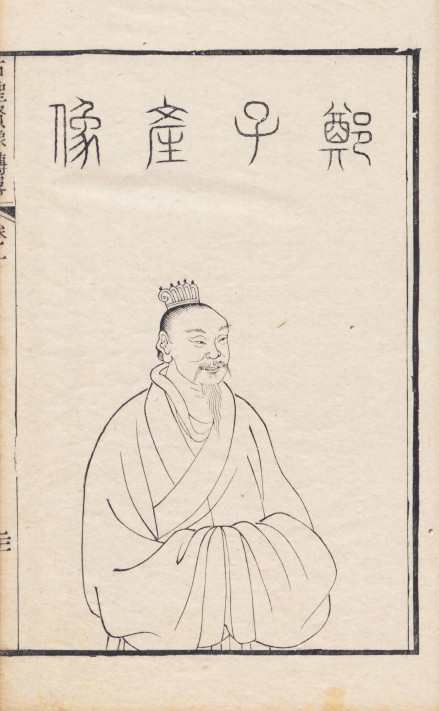 鄭子產像
古聖賢像傳略